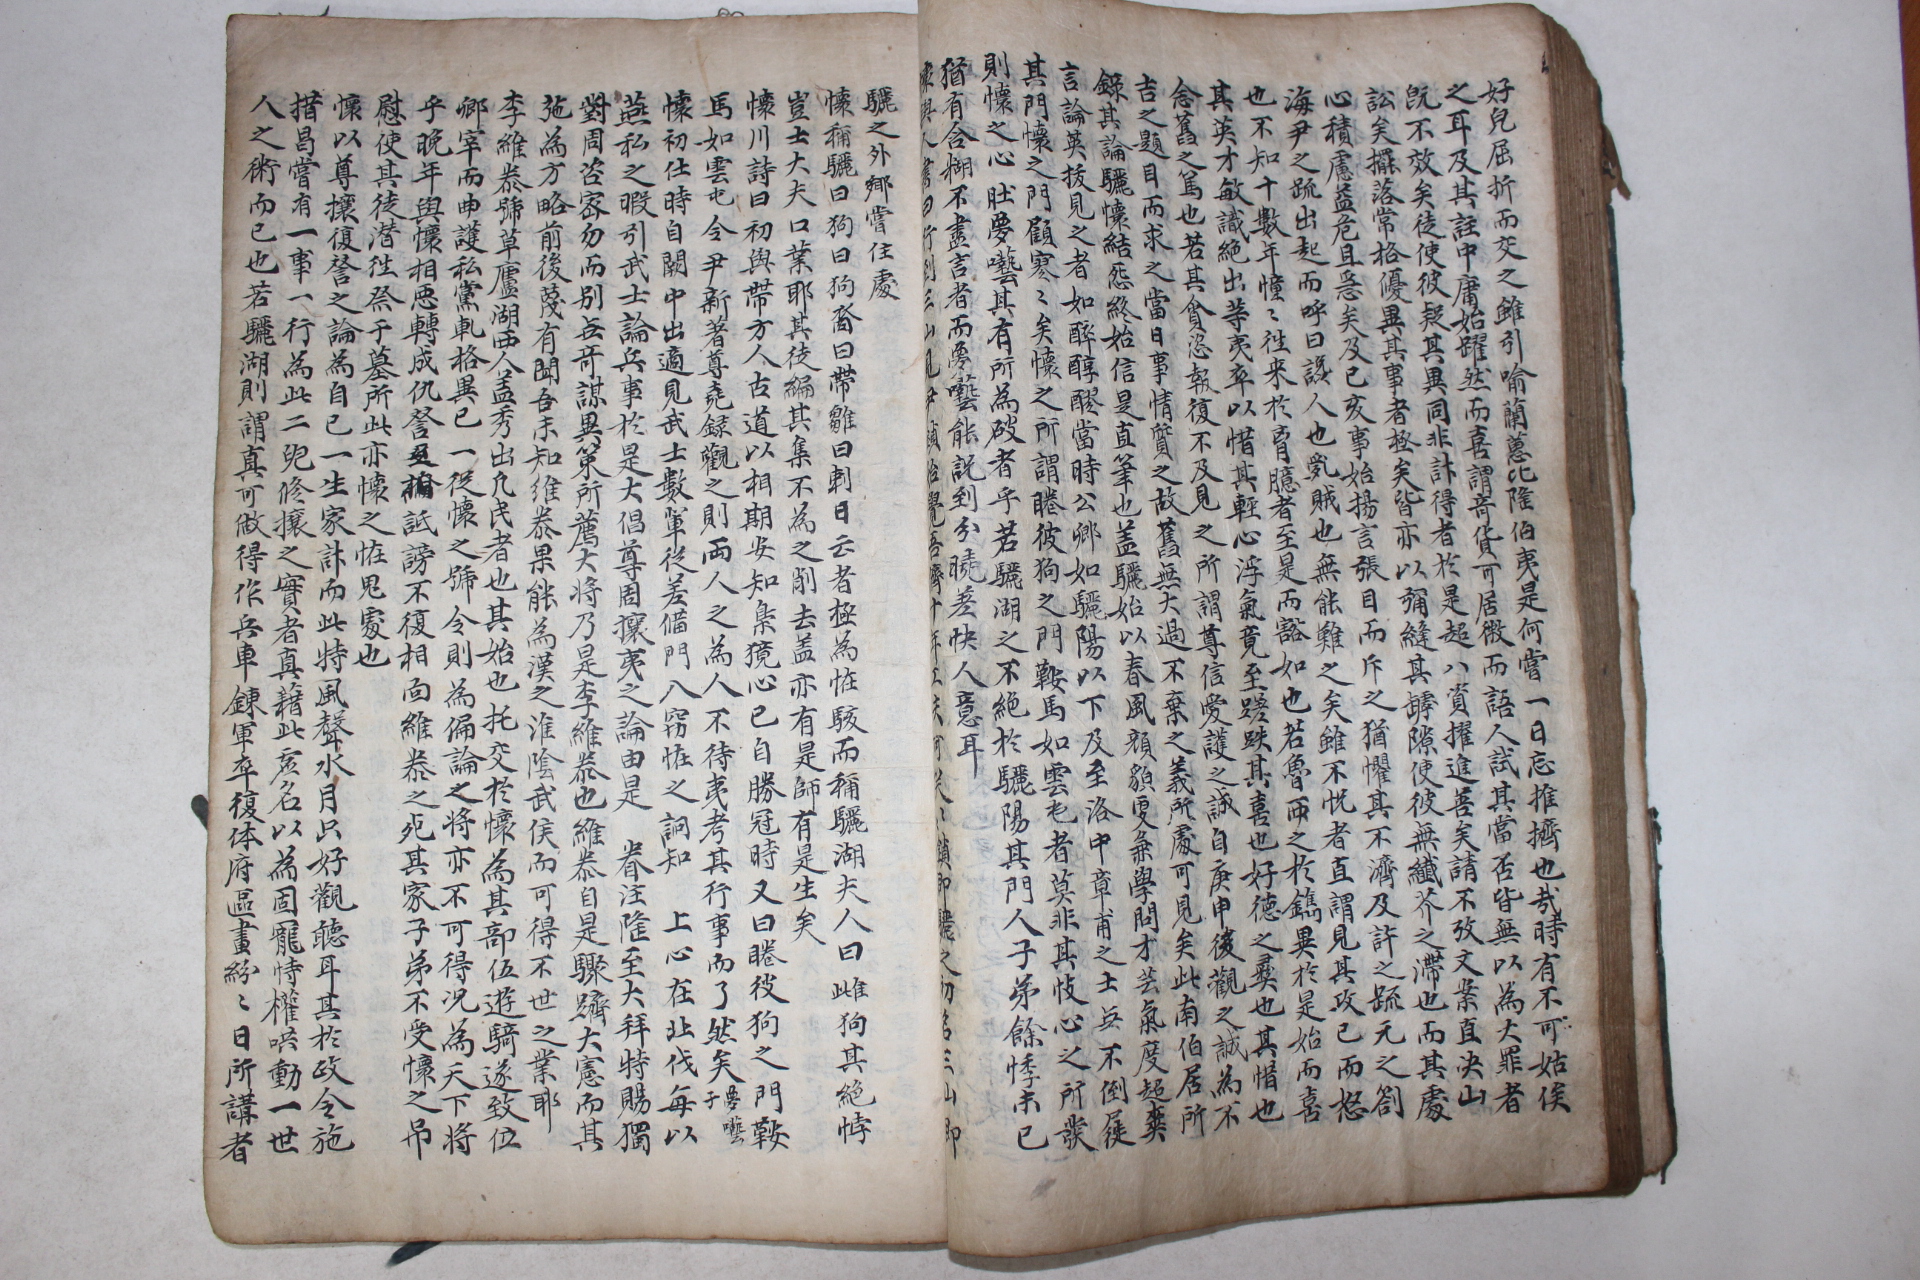 好兒屈折而交之雖引喩蘭蕙比隆伯夷是何嘗一日忘推擠也哉時有不可姑俟
之耳及其註中庸始躍然而喜謂奇貨可居微而語人試其當否皆無以為大罪者
旣不效矣徒使彼疑其異同非訃得者於是超八資擢進善矣請不攷文案直决山
訟矣攞落常格優異其事者極矣皆亦以彌縫其罅隙使彼無纖芥之滯也而其處
心積慮益危且惡矣及己亥事始揚言張目而斥之猶懼其不濟及許之疏元之劄
海尹之疏出起而呼曰誤人也亂賊也無能難之矣雖不悦者直謂見其攻己而怒
也不知十數年憧〻徃来於膏臆者至是而豁如也若魯西之於鐫異於是始而喜
其英才敏識絶出等夷卒以惜其輕心浮氣竟至蹉跌其喜也好德之彛也其惜也
念舊之篤也若其貪恣報復不及見之所謂尊信愛護之誠自庚申後觀之誠為不
吉之題目而求之當日事情質之故舊無大過不棄之義所處可見矣此南伯居所
錄其論驪懷結怨終始信是直筆也盖驪始以春風顔貌更兼學問才芸氣度超爽
言論英拔見之者如醉醇醪當時公卿如驪陽以下及至洛中章甫之士無不倒屣
其門懷之門顧寒〻矣懷之所謂睠彼狗之門鞍馬如雲屯者莫非其忮心之所發
則懷之心肚夢囈其有所為破者乎若驪湖之不絶於驪陽其門人子弟餘悸未已
猶有含糊不盡言者而夢囈能説到分曉差快人意耳
驪之外鄕嘗住處
懷稱驪曰狗曰狗裔曰帶雛曰剌曰云者極為恠駭而稱驪湖夫人曰雌狗其絶悖
豈士大夫口業耶其徒編其集不為之削去盖亦有是師有是生矣
懷川詩曰初與帶方人古道以相期安知梟獍心已自勝冠時又曰睠彼狗之門鞍
馬如雲屯今尹新著尊堯録觀之則兩人之為人不待夷考其行事而了然矣夢囈子
懷初仕時自闕中出適見武士數輩從差備門入窃恠之詗知 上心在北伐每以
燕私之暇引武士論兵事於是大倡尊周攘夷之論由是 眷注隆至大拜特賜獨
對周咨密勿而别無奇謀異策所薦大将乃是李維泰也維泰自是驟躋大憲而其
施為方略前後蔑有聞吾未知維泰果能為漢之淮陰武侯而可得不世之業耶
李維泰號草廬湖西人盖秀出凡民者也其始也托交於懷為其部伍遊騎遂致位
卿宰而曲護私黨軋格異已一從懷之號令則為偏論之将亦不可得况為天下将
乎晚年與懷相惡轉成仇詈至詆謗不復相面維泰之死其家子弟不受懷之吊
慰使其徒潜徃祭于墓所此亦懷之恠鬼處也
懷以尊攘復詧之論為自己一生家訃而此特風聲水月只好觀聽耳其於政令施
措曷嘗有一事一行為此二兒修攘之實者真藉此虛名以為固寵恃權哄動一世
人之術而已也若驪湖則謂真可做得作兵車錬軍卒復体府區畫紛〻日所講者